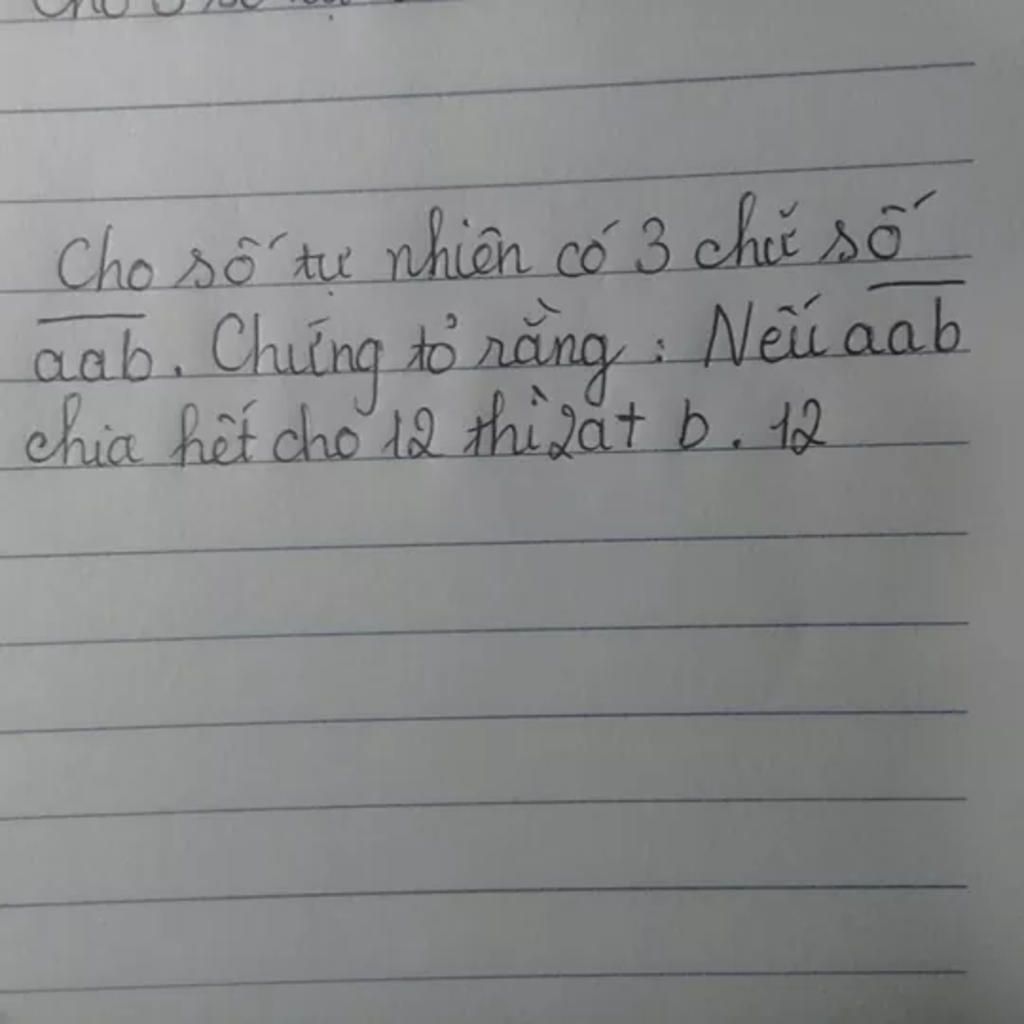 Cho số tự nhiên có 3 chữ số
aab. Chứng tỏ rằng: Nếu aab
chia hết cho 12 thì 2a+ b. 12